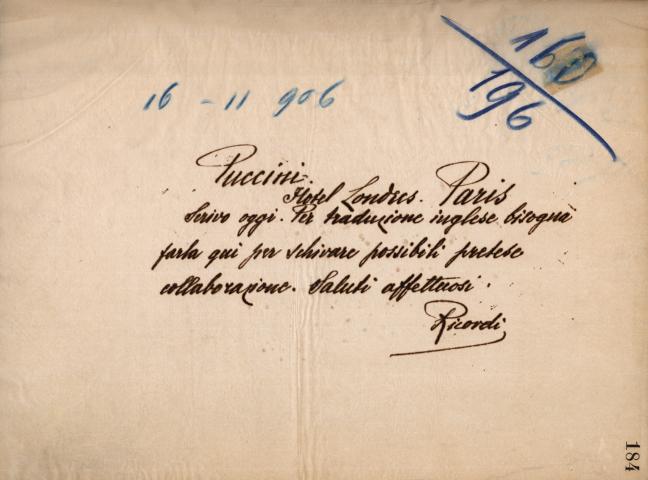 16 - 11 906
196
Puccini.
Hotel Londres. Paris
Scrivo oggi. Per traduzione inglese bisogna
farla qui per schivare possibili pretese
collaborazione. Saluti affettuosi.
Ricordi
184